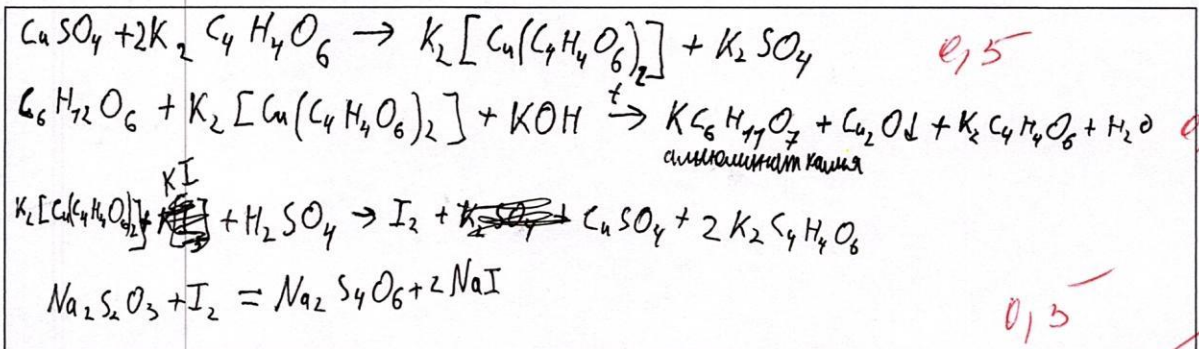 CuSO4 + 2K2C4H4O6 → K2[Cu(C4H4O6)2] + K2SO4 0,5
C6H12O6 + K2[Cu(C4H4O6)2] + KOH t→ KC6H11O7 + Cu2O↓ + K2C4H4O6 + H2O
калия
KI
K2[Cu(C4H4O6)2] + + H2SO4 → I2 + CuSO4 + 2K2C4H4O6
Na2S2O3 + I2 = Na2S4O6 + 2NaI
0,5